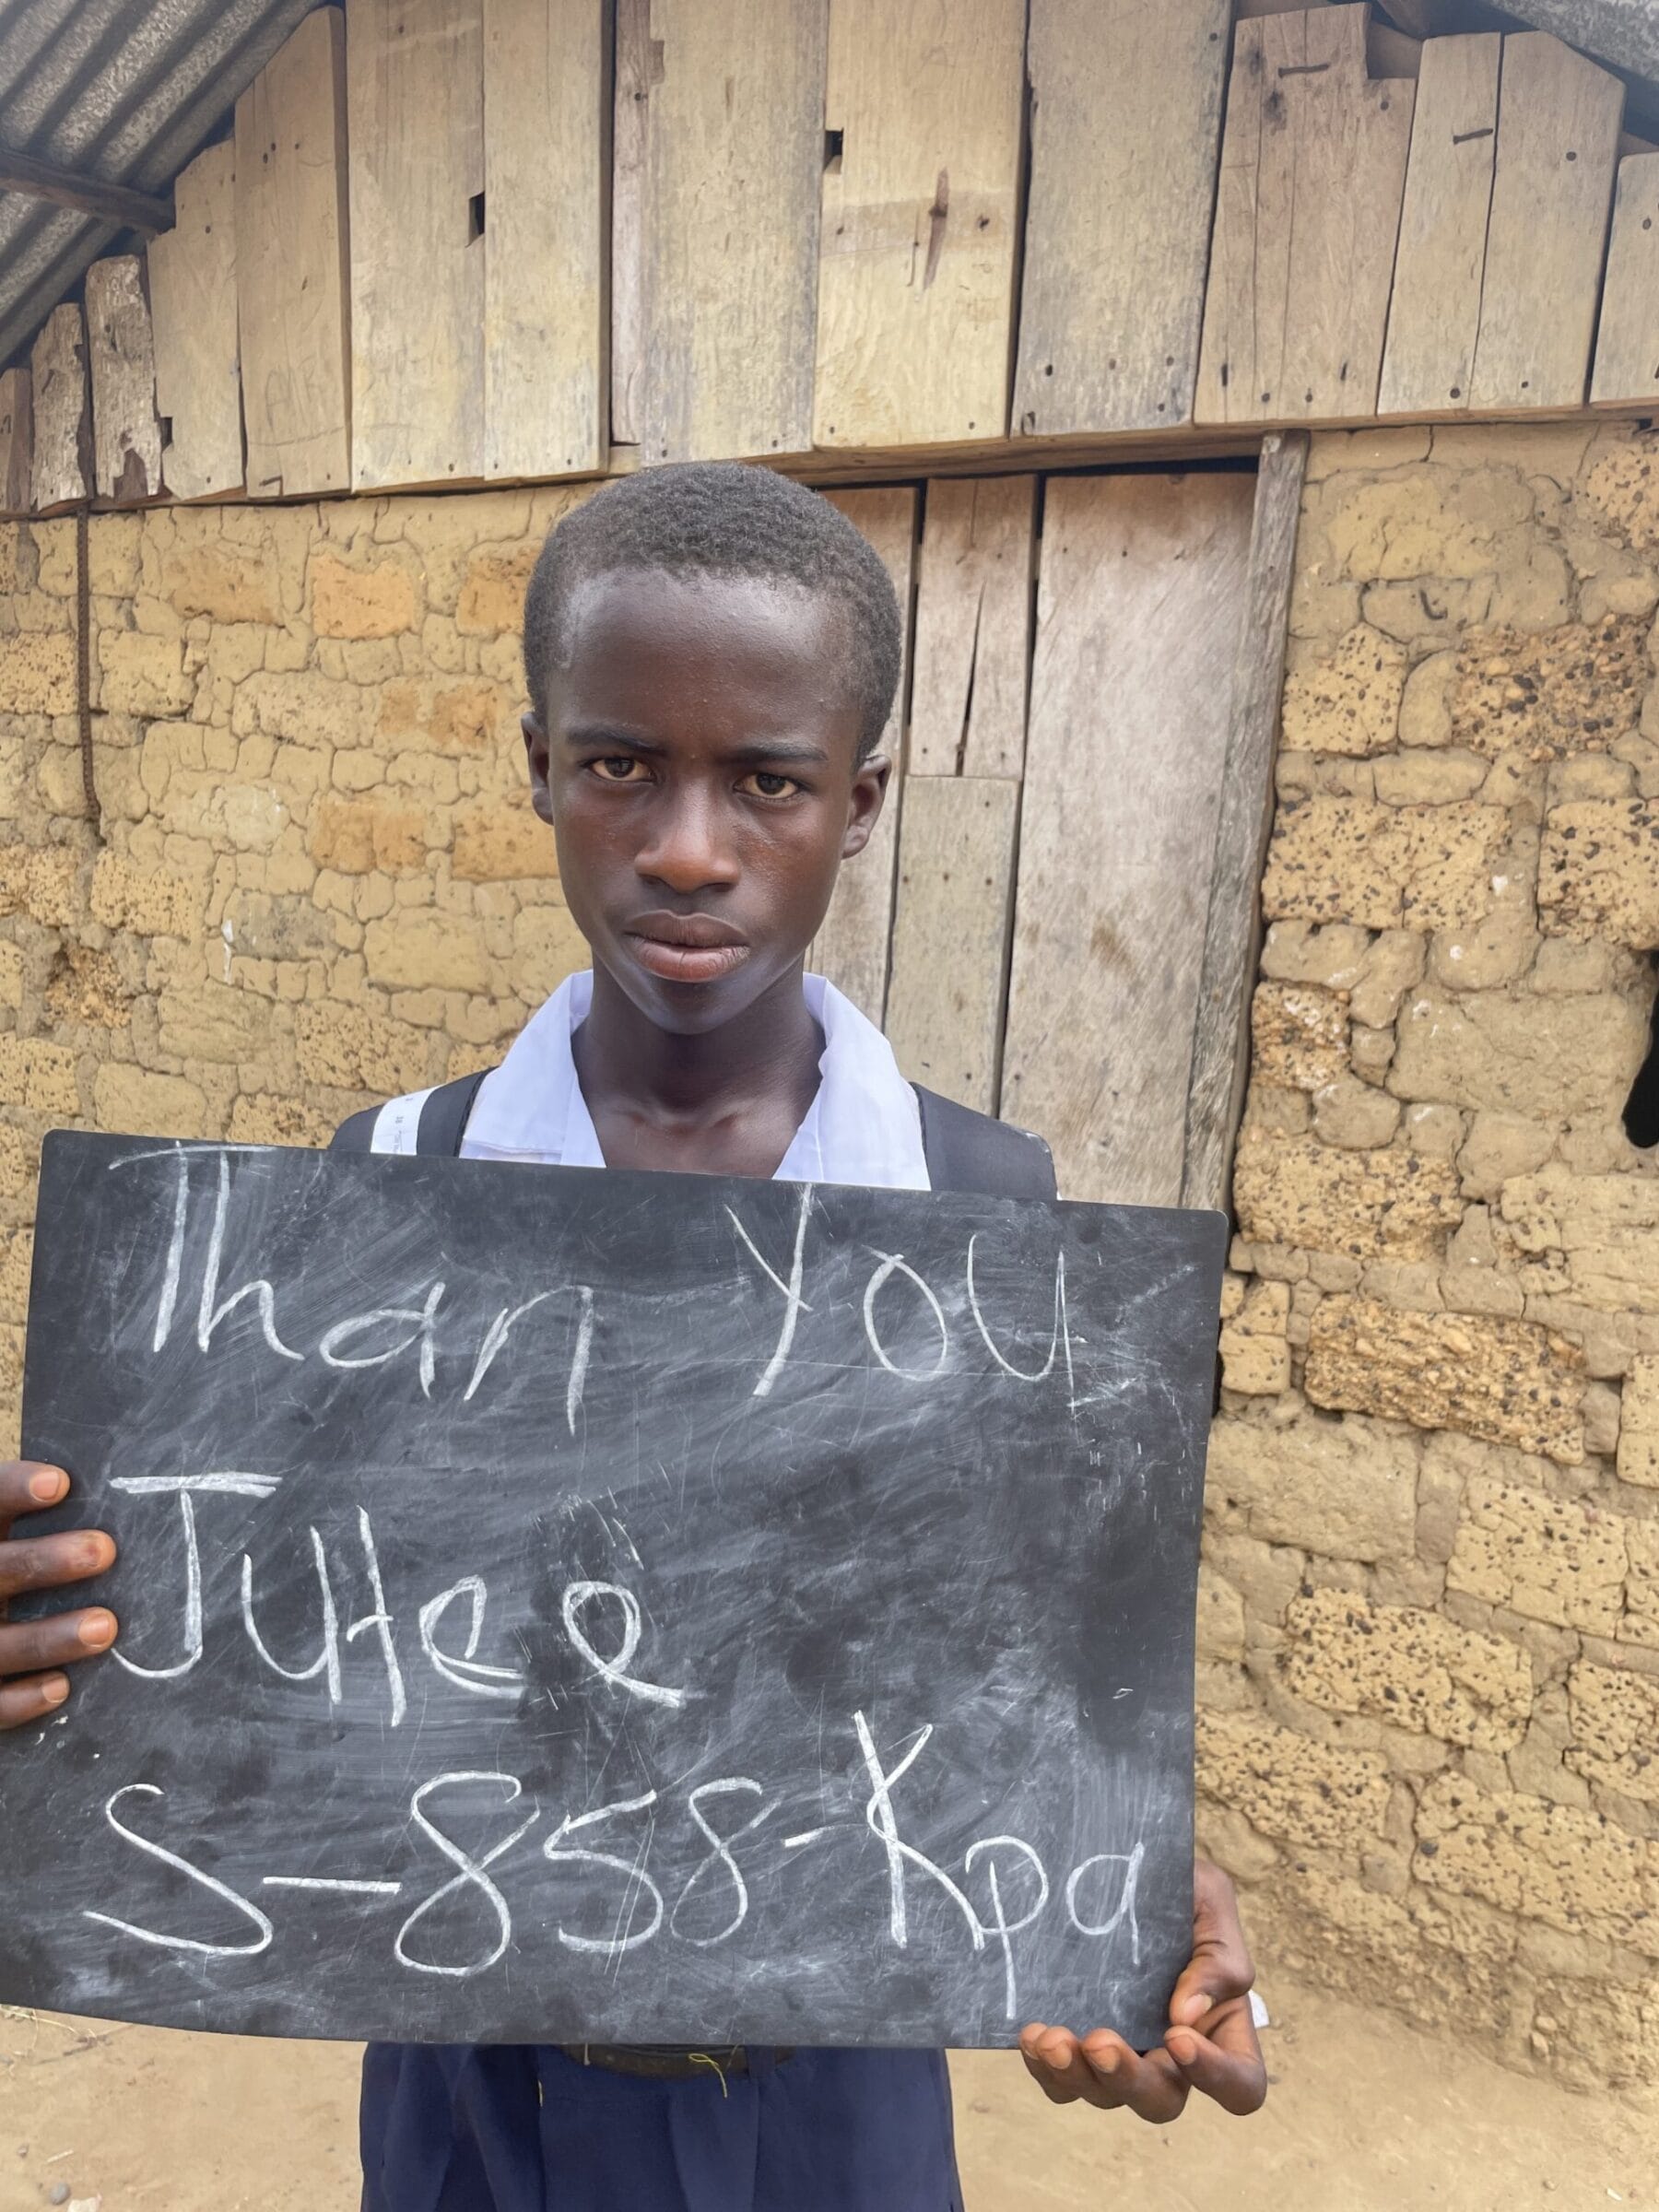 Than You
Jutee
S-858-Kpa